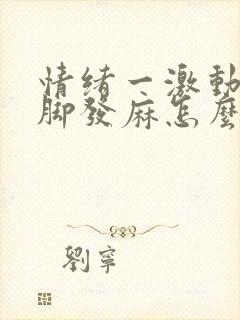 情緒一激動
腳發麻怎麼
劉寧